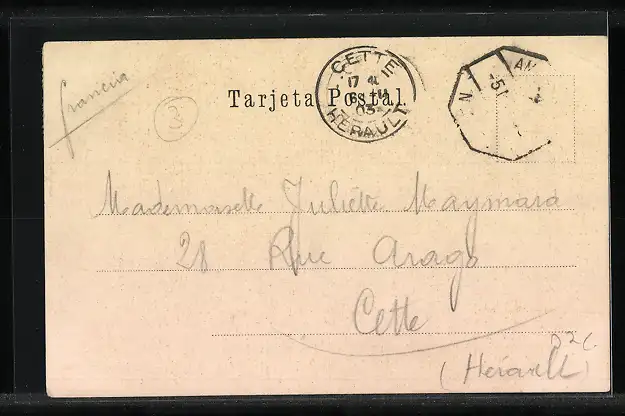 francia
3
CETTE
17 4
6 - 11
03
HERAULT
AN
51
Tarjeta Postal
Mademoiselle Juliette Maymard
28 Rue Arago
Cette
(Hérault)